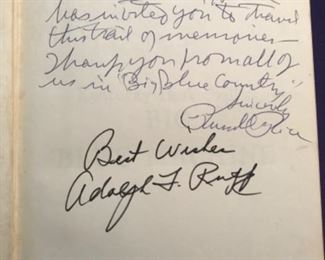 has invited you to travel
this trail of memories
Thank you from all of
us in "Big Blue Country"
Sincerely
Best Wishes
Adolph F. Rupp